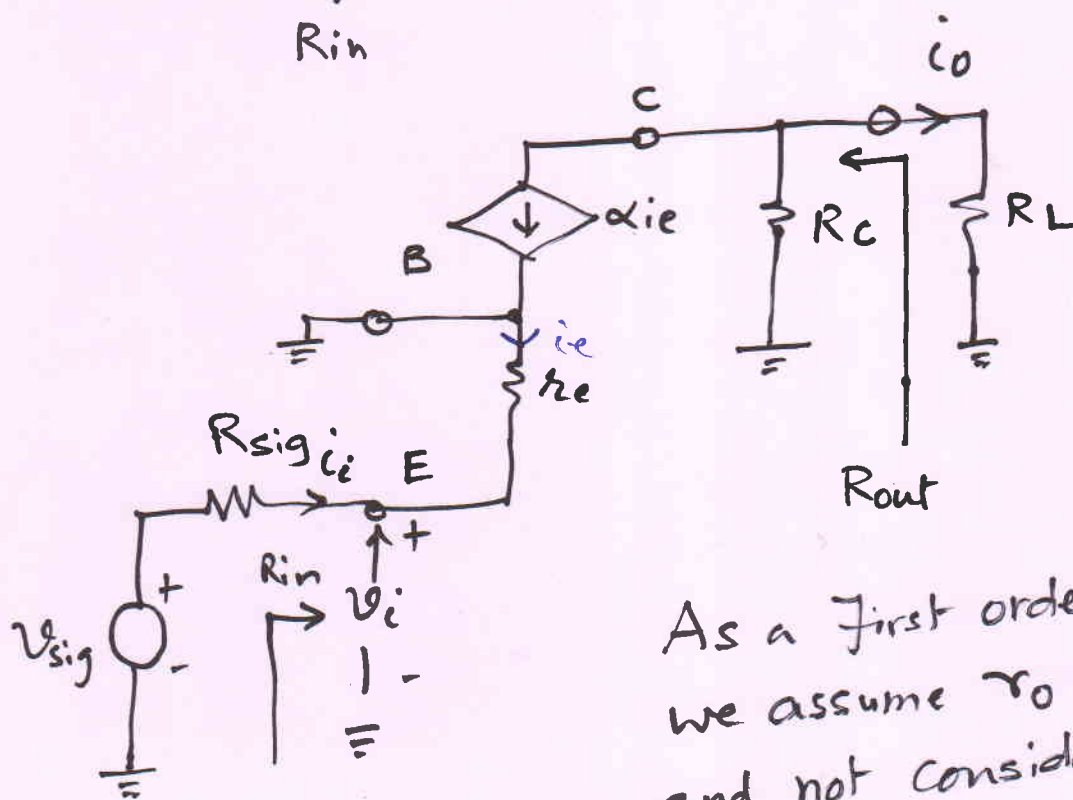 Rin
i₀
C
αie
RC
RL
B
ie
re
Rsig
ii
E
Rout
+
Rin
vi
+
vsig
-
-
As a First orde
we assume r₀
and not consid